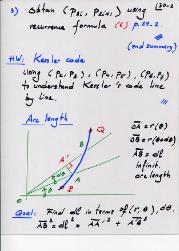 3) Obtain (p2i, p2i+1) using 30-2
recurrence formula (6) p. 29-2.
(end summary)
HW: Kessler code
Using (P2, P3), (P4, P5),
to understand Kessler's code line
by line.
Arc length
Q
A'
B
dθ
θ
P
O
A
OA = r(θ)
OB = r(θ+dθ)
AB = dl
infinit.
arc length
Goal: Find dl in terms of (r, θ), dθ.
AB² = dl² = AA'² + A'B²